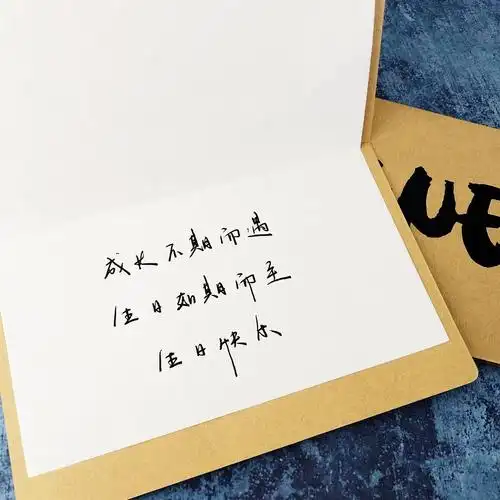 成长不期而遇
佳日如期而至
佳日快乐
UE